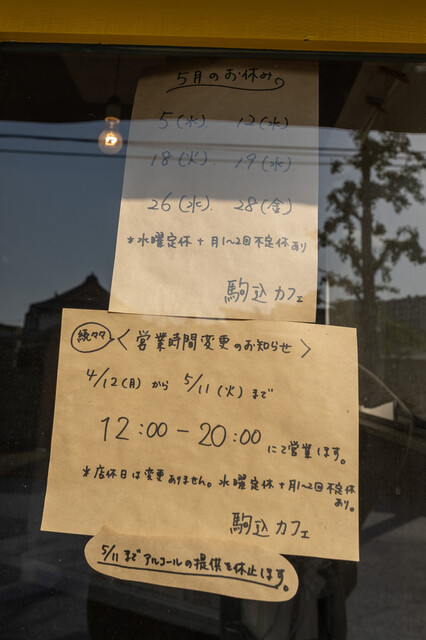 5月のお休み。
5(水). 12(水)
18(火) 19(水)
26(水). 28(金)
*水曜定休+月1〜2回不定休あり
駒込カフェ
続々々 〈営業時間変更のお知らせ〉
4/12(月)から 5/11(火)まで
12:00-20:00 にて営業します。
*店休日は変更ありません。水曜定休+月1〜2回不定休
あり。
駒込カフェ
5/11までアルコールの提供を休止します。